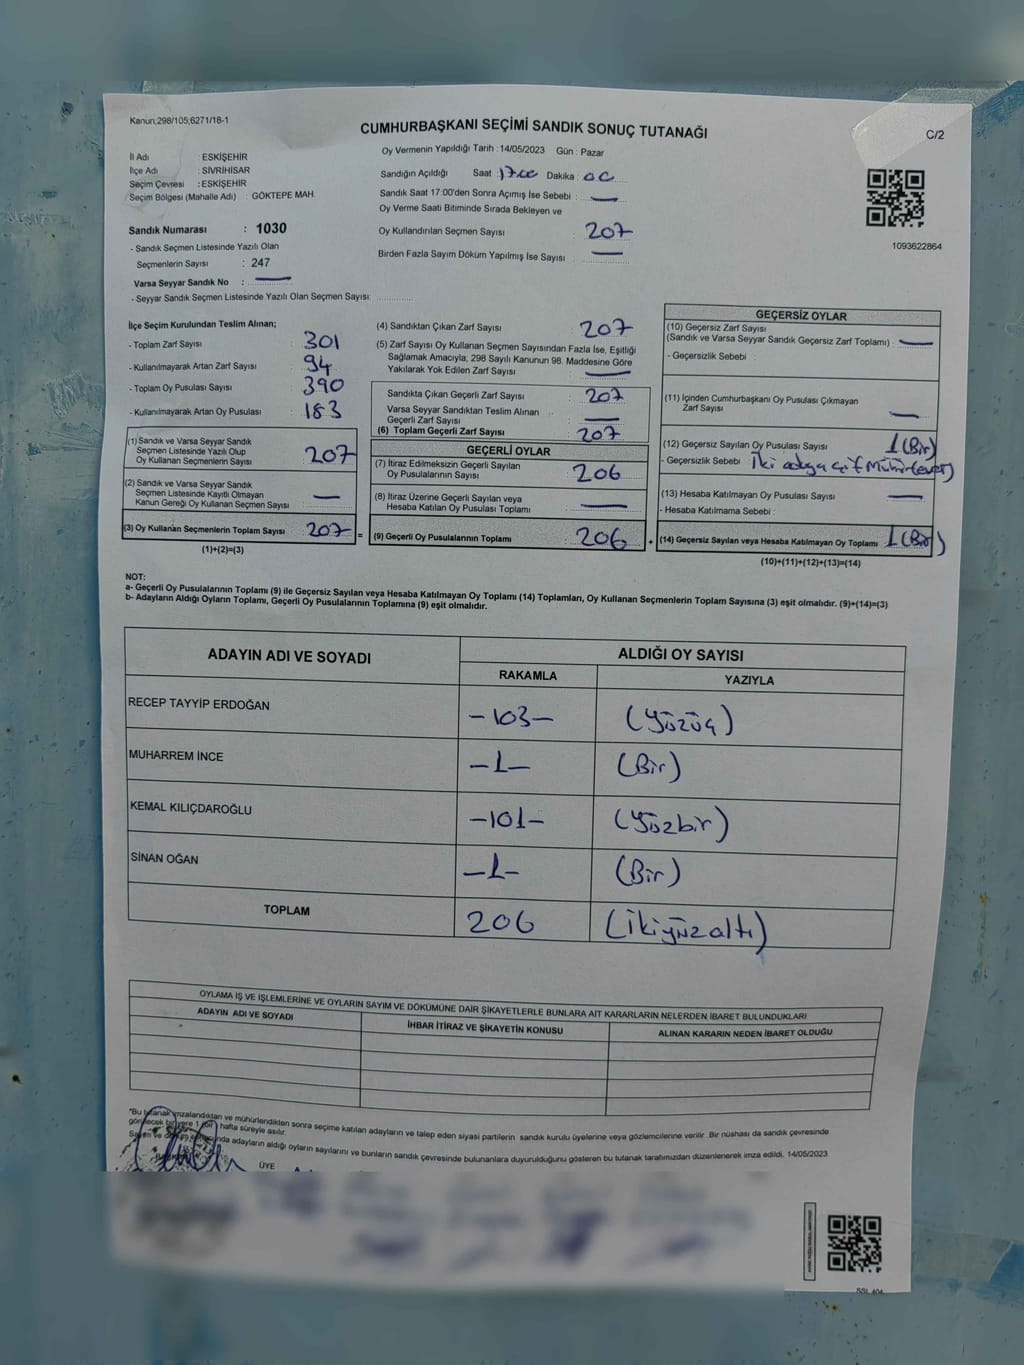 Kanun;298/105;6271/18-1
CUMHURBAŞKANI SEÇİMİ SANDIK SONUÇ TUTANAĞI
C/2
İl Adı : ESKİŞEHİR
İlçe Adı : SİVRİHİSAR
Seçim Çevresi : ESKİŞEHİR
Seçim Bölgesi (Mahalle Adı) : GÖKTEPE MAH.
Sandık Numarası : 1030
- Sandık Seçmen Listesinde Yazılı Olan
Seçmenlerin Sayısı : 247
Varsa Seyyar Sandık No : —
- Seyyar Sandık Seçmen Listesinde Yazılı Olan Seçmen Sayısı: ............
Oy Vermenin Yapıldığı Tarih : 14/05/2023 Gün : Pazar
Sandığın Açıldığı Saat 17.00 Dakika : 00
Sandık Saat 17:00'den Sonra Açımış İse Sebebi : —
Oy Verme Saati Bitiminde Sırada Bekleyen ve
Oy Kullandırılan Seçmen Sayısı : 207
Birden Fazla Sayım Döküm Yapılmış İse Sayısı : —
1093622864
İlçe Seçim Kurulundan Teslim Alınan;
- Toplam Zarf Sayısı : 301
- Kullanılmayarak Artan Zarf Sayısı : 94
- Toplam Oy Pusulası Sayısı : 390
- Kullanılmayarak Artan Oy Pusulası : 183
(1) Sandık ve Varsa Seyyar Sandık
Seçmen Listesinde Yazılı Olup
Oy Kullanan Seçmenlerin Sayısı : 207
(2) Sandık ve Varsa Seyyar Sandık
Seçmen Listesinde Kayıtlı Olmayan
Kanun Gereği Oy Kullanan Seçmen Sayısı : —
(3) Oy Kullanan Seçmenlerin Toplam Sayısı : 207 =
(1)+(2)=(3)
(4) Sandıktan Çıkan Zarf Sayısı : 207
(5) Zarf Sayısı Oy Kullanan Seçmen Sayısından Fazla İse, Eşitliği
Sağlamak Amacıyla, 298 Sayılı Kanunun 98. Maddesine Göre
Yakılarak Yok Edilen Zarf Sayısı : —
Sandıkta Çıkan Geçerli Zarf Sayısı : 207
Varsa Seyyar Sandıktan Teslim Alınan
Geçerli Zarf Sayısı : —
(6) Toplam Geçerli Zarf Sayısı : 207
GEÇERLİ OYLAR
(7) İtiraz Edilmeksizin Geçerli Sayılan
Oy Pusulalarının Sayısı : 206
(8) İtiraz Üzerine Geçerli Sayılan veya
Hesaba Katılan Oy Pusulası Toplamı : —
(9) Geçerli Oy Pusulalarının Toplamı : 206 +
GEÇERSİZ OYLAR
(10) Geçersiz Zarf Sayısı
(Sandık ve Varsa Seyyar Sandık Geçersiz Zarf Toplamı) : —
- Geçersizlik Sebebi :
(11) İçinden Cumhurbaşkanı Oy Pusulası Çıkmayan
Zarf Sayısı : —
(12) Geçersiz Sayılan Oy Pusulası Sayısı : 1 (Bir)
- Geçersizlik Sebebi : İki adaya çift Mühür (evet)
(13) Hesaba Katılmayan Oy Pusulası Sayısı : —
- Hesaba Katılmama Sebebi :
(14) Geçersiz Sayılan veya Hesaba Katılmayan Oy Toplamı : 1 (Bir)
(10)+(11)+(12)+(13)=(14)
NOT:
a- Geçerli Oy Pusulalarının Toplamı (9) ile Geçersiz Sayılan veya Hesaba Katılmayan Oy Toplamı (14) Toplamları, Oy Kullanan Seçmenlerin Toplam Sayısına (3) eşit olmalıdır. (9)+(14)=(3)
b- Adayların Aldığı Oyların Toplamı, Geçerli Oy Pusulalarının Toplamına (9) eşit olmalıdır.
ADAYIN ADI VE SOYADI ALDIĞI OY SAYISI
RAKAMLA YAZIYLA
RECEP TAYYİP ERDOĞAN -103- (Yüzüç)
MUHARREM İNCE -1- (Bir)
KEMAL KILIÇDAROĞLU -101- (Yüzbir)
SİNAN OĞAN -1- (Bir)
TOPLAM 206 (İkiyüzaltı)
OYLAMA İŞ VE İŞLEMLERİNE VE OYLARIN SAYIM VE DÖKÜMÜNE DAİR ŞİKAYETLERLE BUNLARA AİT KARARLARIN NELERDEN İBARET BULUNDUKLARI
ADAYIN ADI VE SOYADI İHBAR İTİRAZ VE ŞİKAYETİN KONUSU ALINAN KARARIN NEDEN İBARET OLDUĞU
*Bu tutanak imzalandıktan ve mühürlendikten sonra seçime katılan adayların ve talep eden siyasi partilerin sandık kurulu üyelerine veya gözlemcilerine verilir. Bir nüshası da sandık çevresinde
görülecek bir yere 1 (bir) hafta süreyle asılır.
Sayım ve döküm adayların aldığı oyların sayılarını ve bunların sandık çevresinde bulunanlara duyurulduğunu gösteren bu tutanak tarafımızdan düzenlenerek imza edildi. 14/05/2023
ÜYE